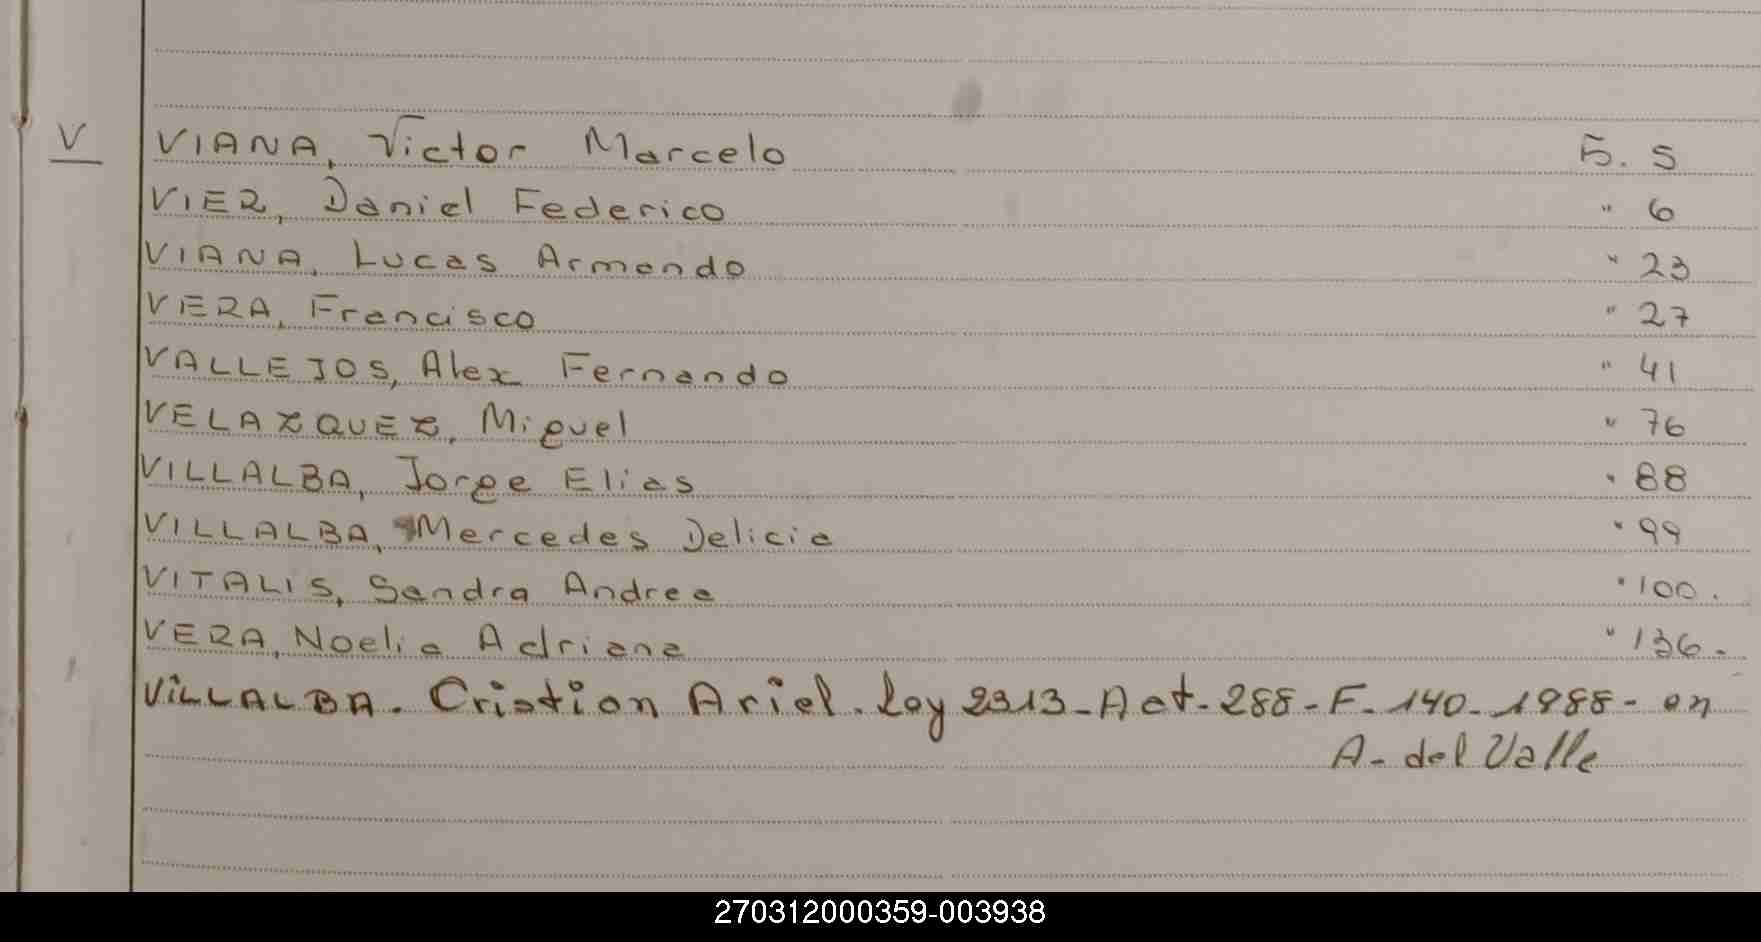 V
VIANA, Victor Marcelo F. 5
VIER, Daniel Federico " 6
VIANA, Lucas Armando " 23
VERA, Francisco " 27
VALLEJOS, Alex Fernando " 41
VELAZQUEZ, Miguel " 76
VILLALBA, Jorge Elias " 88
VILLALBA, Mercedes Delicia " 99
VITALIS, Sandra Andrea " 100.
VERA, Noelia Adriana " 136.
VILLALBA. Cristian Ariel. Ley 2313-Act-288-F-140-1988- en
A- del Valle
270312000359-003938